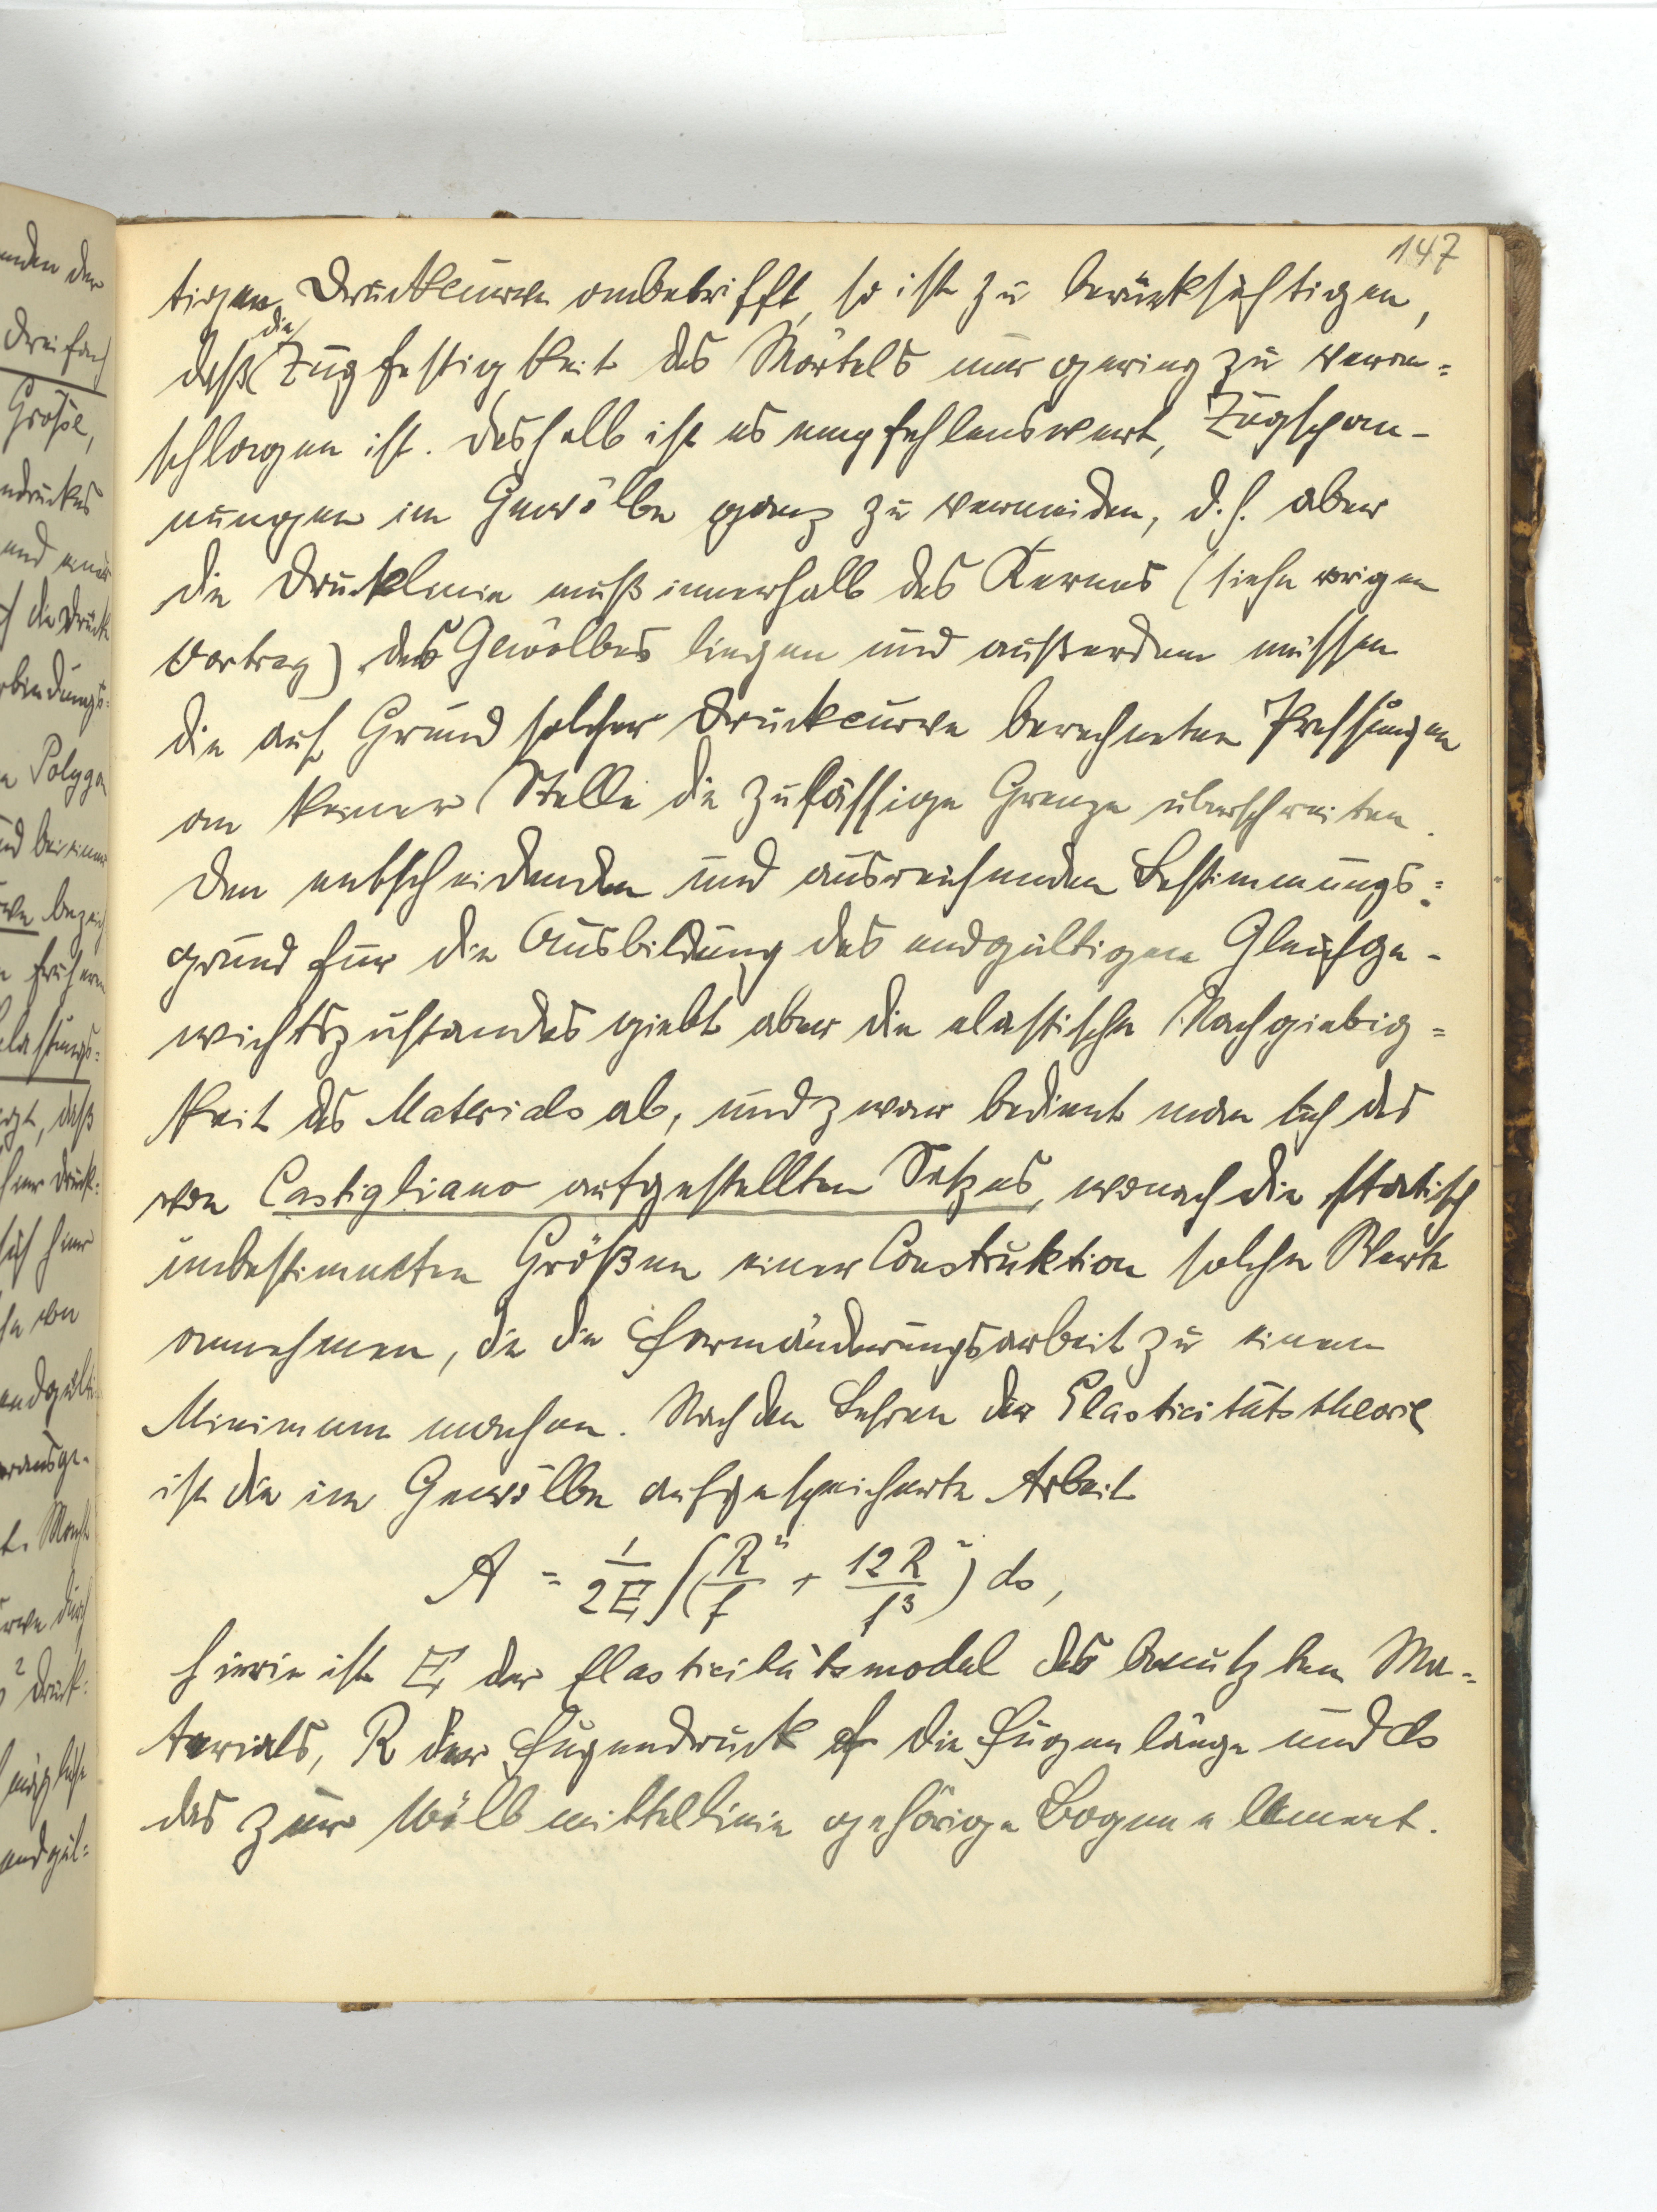 147
tigen Druckcurve anbetrifft, so ist zu berücksichtigen,
daß die Zugfestigkeit des Mörtels nur gering zu veran=
schlagen ist. Deshalb ist es empfehlenswert, Zugspan-
nungen im Gewölbe ganz zu vermeiden, d. h. aber
die Drucklinie muß innerhalb des Kernes (siehe vorigen
Vortrag) des Gewölbes liegen und außerdem müssen
die auf Grund solcher Druckcurve berechneten Pressungen
an keiner Stelle die zulässige Grenze überschreiten.
Den entscheidenden und ausreichenden Bestimmungs=
grund für die Ausbildung des endgültigen Gleichge-
wichtszustandes giebt aber die elastische Nachgiebig=
keit des Materials ab, und zwar bedient man sich des
von Castigliano aufgestellten Satzes, wonach die statisch
unbestimmten Größen einer Construktion solche Werte
annehmen, die die Formänderungsarbeit zu einem
Minimum machen. Nach den Lehren der Elasticitätstheorie
ist die im Gewölbe aufgespeicherte Arbeit
A = 1/2E ∫(R²/f + 12R²/f³) ds,
hierin ist E der Elasticitätsmodel des benutzten Ma=
terials, R der Fugendruck f die Fugenlänge und ds
das zur Wölbmittellinie gehörige Bogenelement.